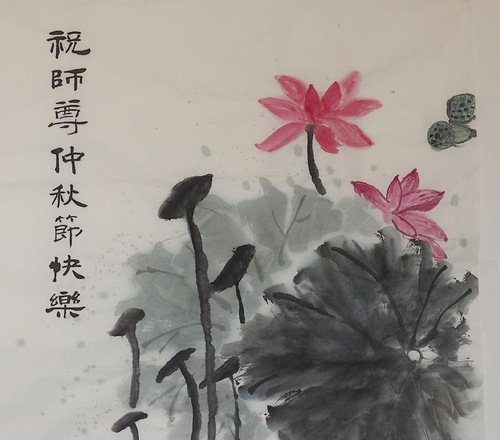 祝師尊仲秋節快樂